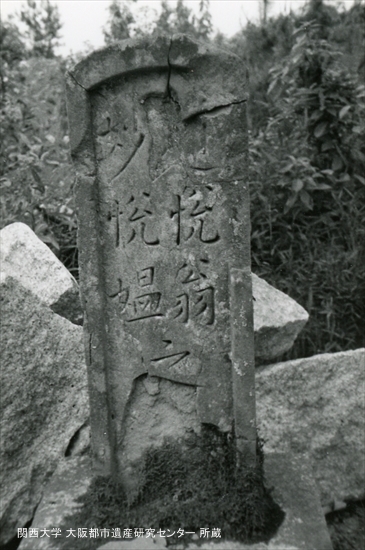 悦翁
妙悦媼
之
関西大学 大阪都市遺産研究センター 所蔵